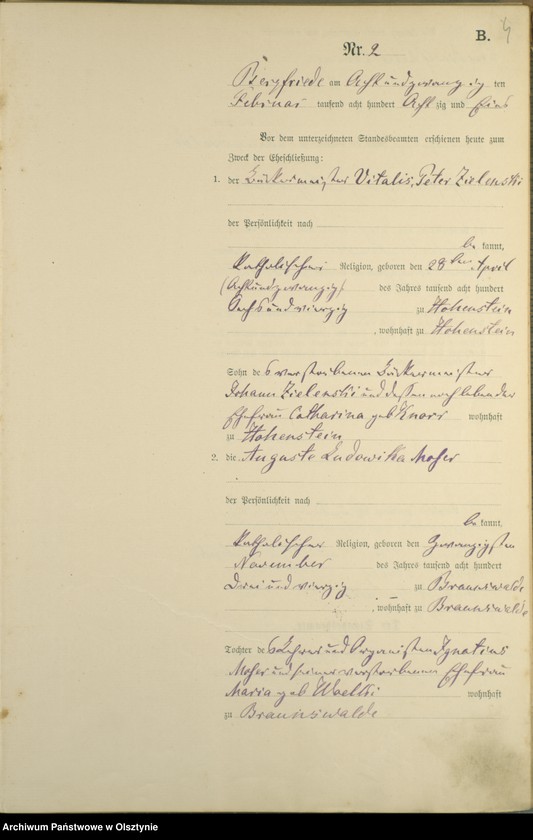 B. 4
Nr. 2
Bergfriede am Acht und zwanzig ten
Februar tausend acht hundert Acht zig und Eins
Vor dem unterzeichneten Standesbeamten erschienen heute zum
Zweck der Eheschließung:
1. der Bäckermeister Vitalis, Peter Zielenski
der Persönlichkeit nach
be kannt,
katholischer Religion, geboren den 28 ten April
(Acht und zwanzig) des Jahres tausend acht hundert
Sechs und vierzig zu Hohenstein
, wohnhaft zu Hohenstein
Sohn des verstorbenen Bäckermeister
Johann Zielenski und dessen noch lebender
Ehefrau Catharina geb Knorr wohnhaft
zu Hohenstein
2. die Auguste Ludowika Moher
der Persönlichkeit nach
be kannt,
katholischer Religion, geboren den Zwanzigsten
November des Jahres tausend acht hundert
Drei und vierzig zu Braunswalde
, wohnhaft zu Braunswalde
Tochter des Lehrer und Organisten Ignatius
Moher und seiner verstorbenen Ehefrau
Maria geb Woelki wohnhaft
zu Braunswalde
Archiwum Państwowe w Olsztynie